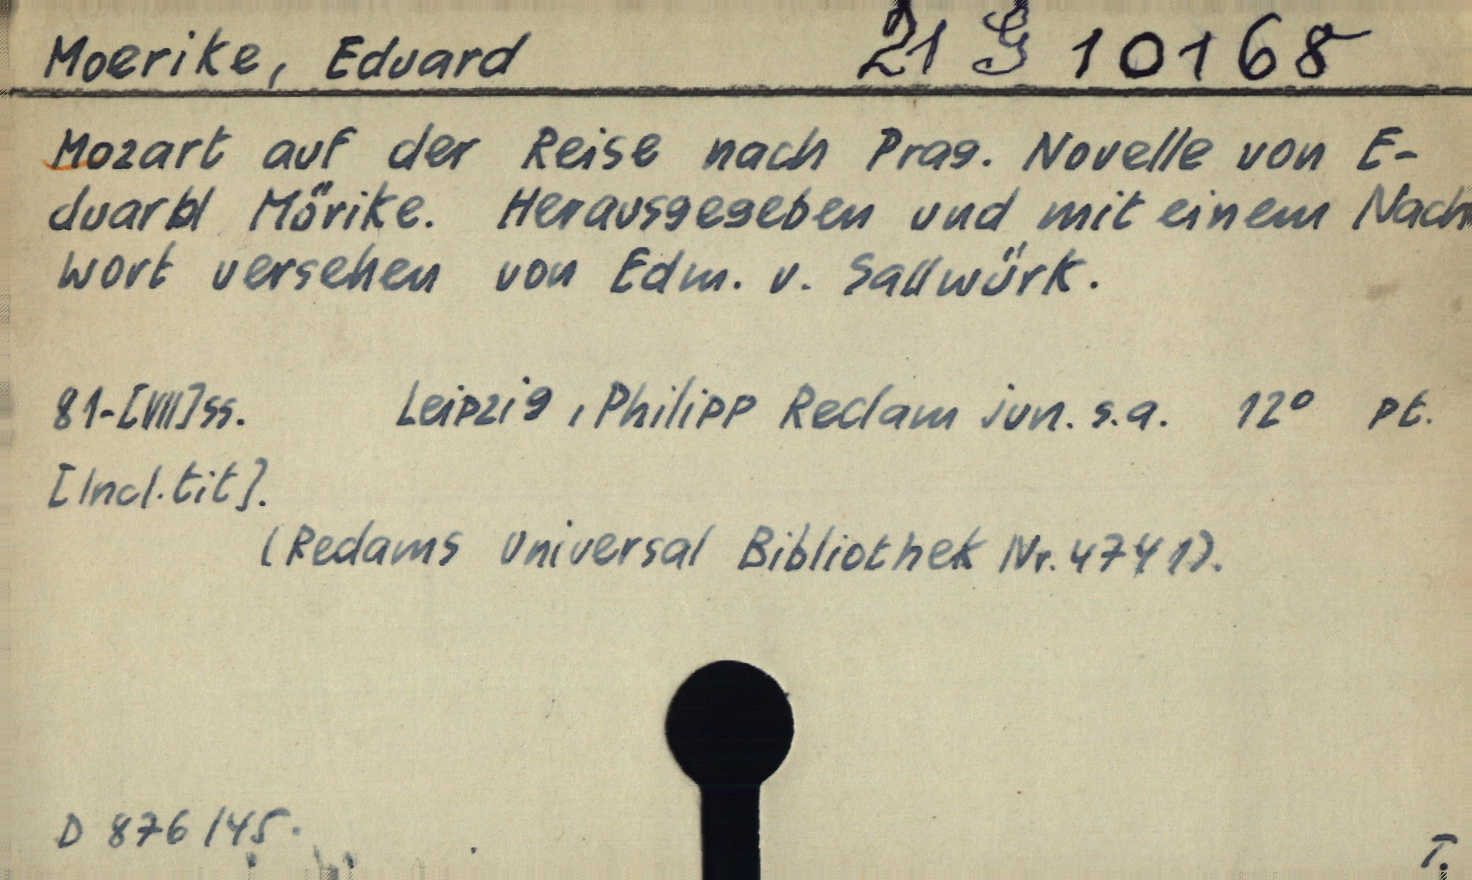 Moerike, Eduard 21 G 10168
Mozart auf der Reise nach Prag. Novelle von E-
duard Mörike. Herausgegeben und mit einem Nach
wort versehen von Edm. v. Sallwürk.
81-[VII]ss. Leipzig, Philipp Reclam jun. s.a. 12° pt.
[Incl.tit].
(Reclams Universal Bibliothek Nr. 4741).
D 876/45.
T.